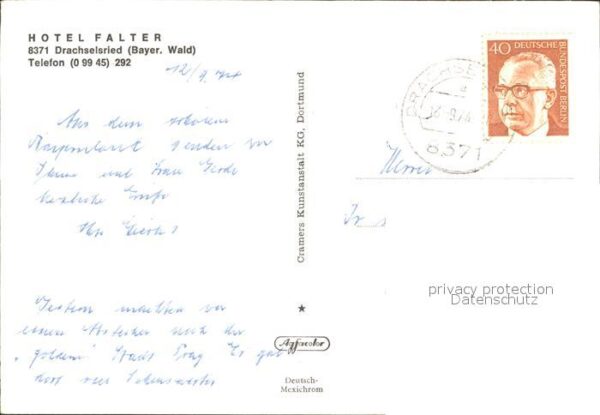 HOTEL FALTER
8371 Drachselsried (Bayer. Wald)
Telefon (0 99 45) 292
12/9. 74
Aus dem schönen
senden wir
Ihnen und Frau
herzliche Grüße
Ihre
40 DEUTSCHE BUNDESPOST BERLIN
DRACHSE
8371
Herrn
Cramers Kunstanstalt KG, Dortmund
privacy protection
Datenschutz
Gestern machten wir
einen Abstecher nach der
"goldenen" Stadt Prag Es gab
dort viel Sehenswertes
Agfacolor
Deutsch-
Mexichrom